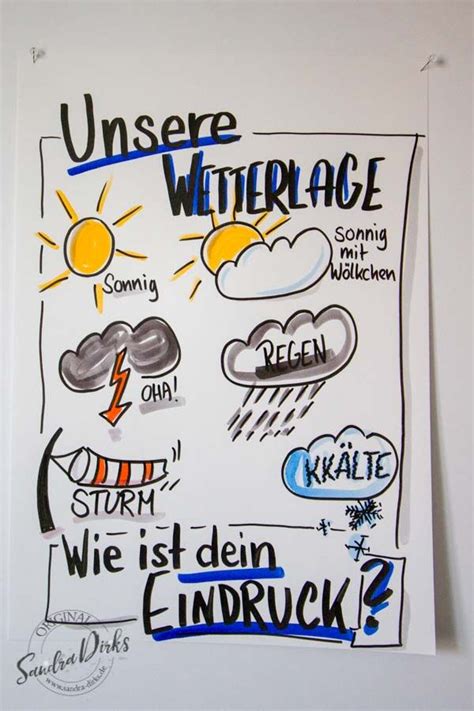 Unsere
WETTERLAGE
Sonnig
Sonnig
mit
Wölkchen
OHA!
REGEN
STURM
KKÄLTE
Wie ist dein
EINDRUCK?
ORIGINAL
Sandra Dirks
www.sandra-dirks.de